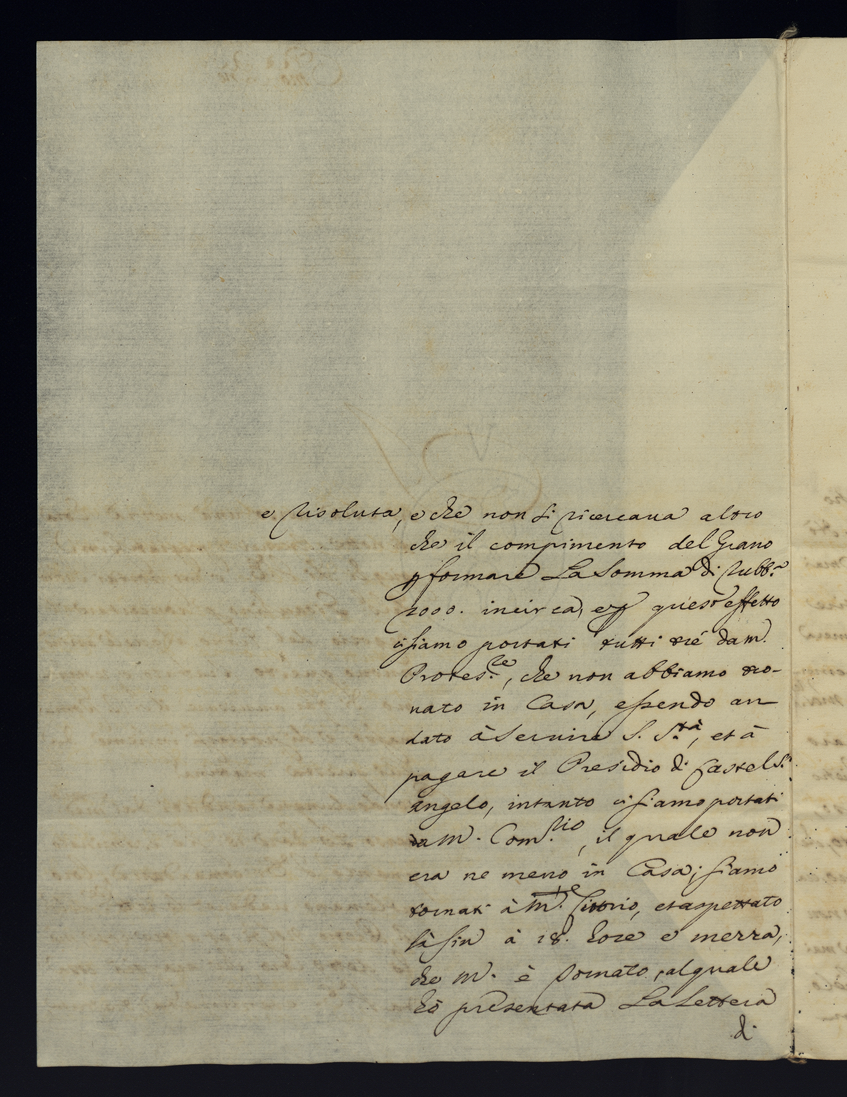 e risoluta, e che non si ricercava altro
che il compimento del Grano
p formare La Somma di Rubb.a
2000. incirca, e p questo effetto
ci siamo portati tutti trè da m.
Protes.re, che non abbiamo tro-
vato in Casa, essendo an-
dato à Servire S. S.tà, et à
pagare il Presidio di Castel S.
Angelo, intanto ci siamo portati
da M. Com.rio, il quale non
era ne meno in Casa; siamo
tornati à M.r et aspettato
là fin à 18. hore e mezza,
che M. è tornato, al quale
hò presentata La Lettera
di